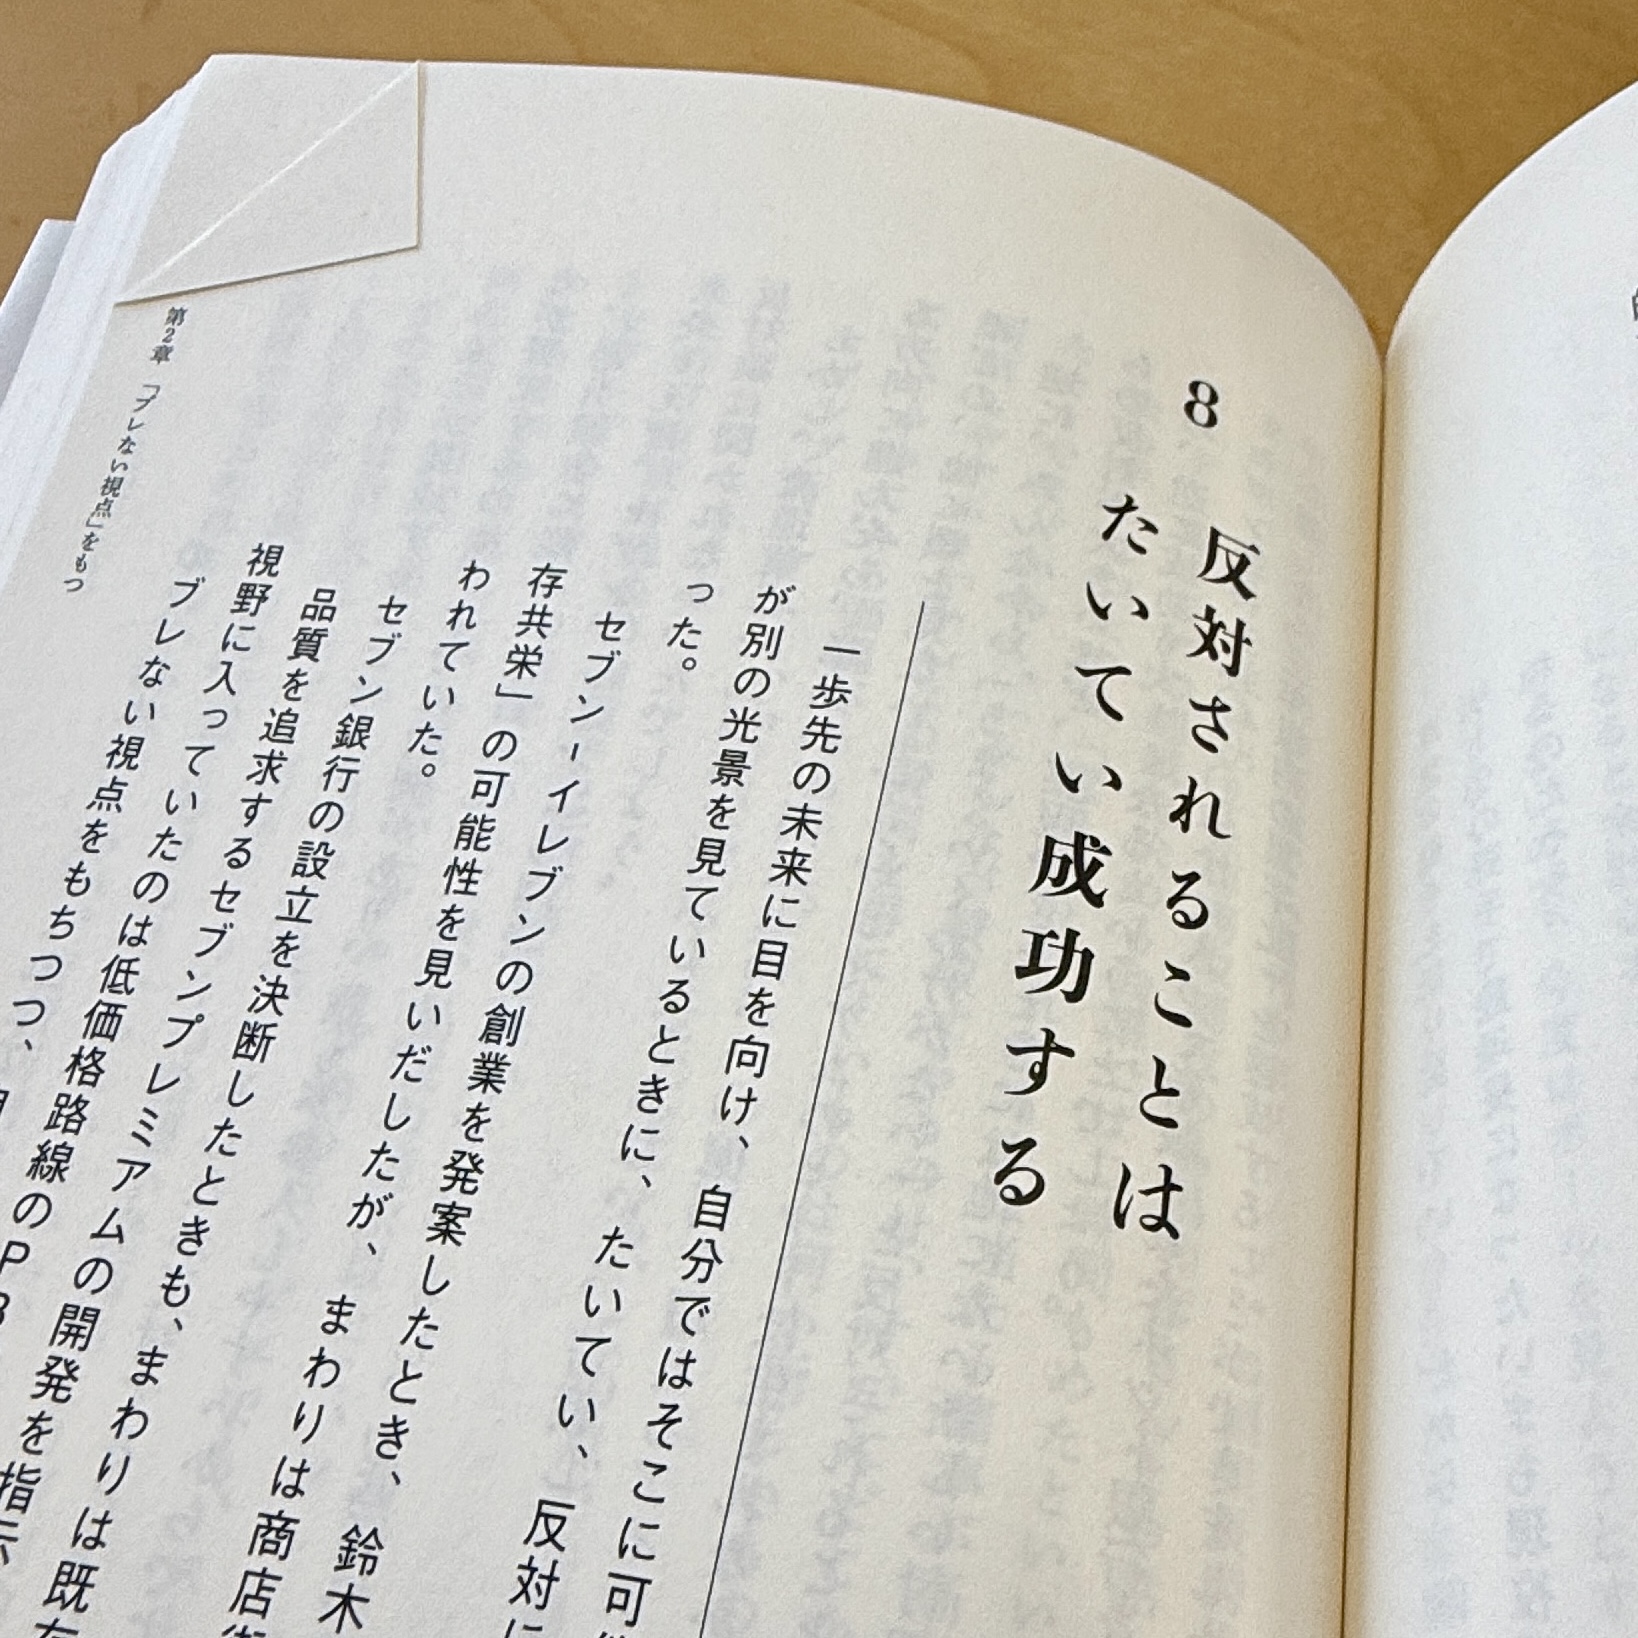 8
反対されることは
たいてい成功する
一歩先の未来に目を向け、自分ではそこに可
が別の光景を見ているときに、たいてい、反対に
った。
セブン-イレブンの創業を発案したとき、鈴木
存共栄」の可能性を見いだしたが、まわりは商店
われていた。
セブン銀行の設立を決断したときも、まわりは既存
品質を追求するセブンプレミアムの開発を指示
視野に入っていたのは低価格路線のPB
ブレない視点をもちつつ、
第2章 「ブレない視点」をもつ